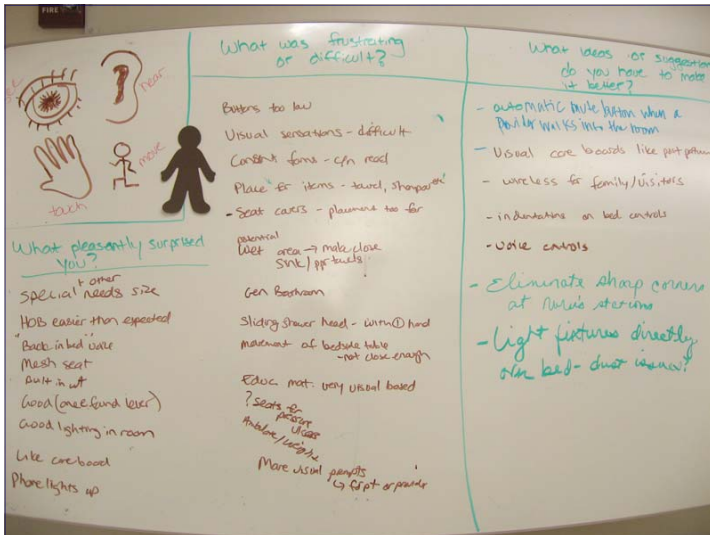 FIRE
see
hear
touch
move
What pleasantly surprised
you?
+ other
Special needs size
HOB easier than expected
Back in bed voice
Mesh seat
Built in wt
Good (once found lever)
Good lighting in room
Like care board
Phone lights up
What was frustrating
or difficult?
Buttons too low
Visual sensations - difficult
Consent forms - can read
Place for items - towel, shampoo etc
- Seat covers - placement too far
potential
Wet area → make close
sink/ppr towels
Gen Bathroom
Sliding shower head - with 1 hand
movement of bedside table
- not close enough
Educ mat. very visual based
? Seats for
pressure
ulcers
/weight
More visual prompts
↳ for pt or provider
What ideas or suggestions
do you have to make
it better?
- automatic mute button when a
provider walks into the room
- Visual care boards like post partum
- wireless for family/visitors
- indentations on bed controls
- voice controls
- Eliminate sharp corners
at nurse's stations
- Light fixtures directly
over bed - dust issues?